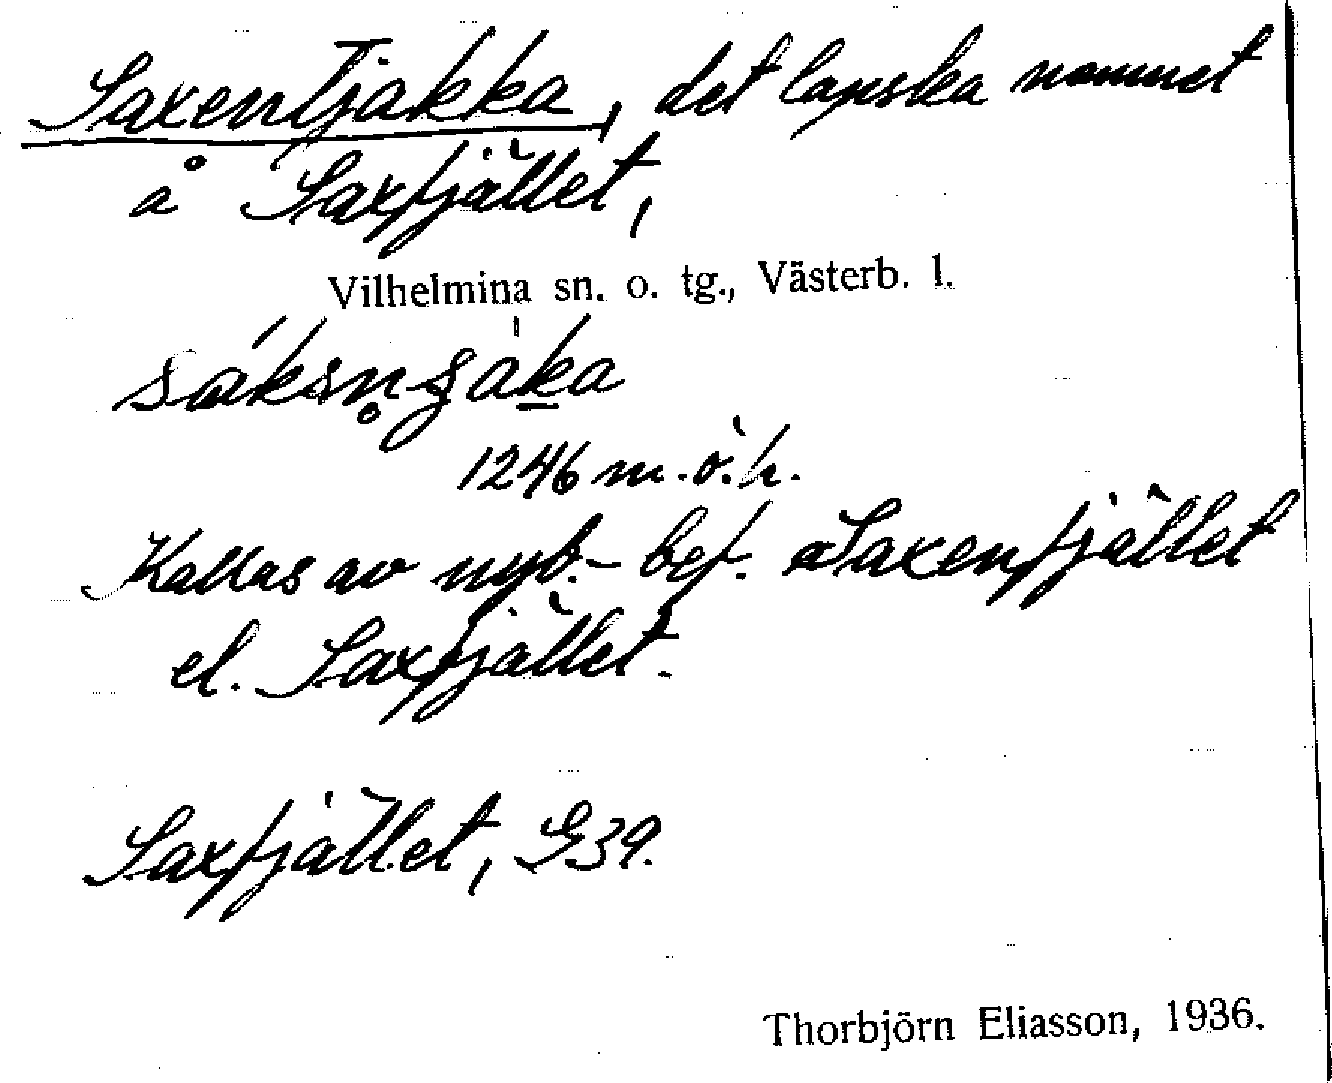 Saxentjakka, det lapska namnet
å Saxfjället,
Vilhelmina sn. o. tg., Västerb. l.
1246 m.ö.h.
Kallas av nyb.-bef. Saxenfjället
el. Saxfjället.
Saxfjället, G39.
Thorbjörn Eliasson, 1936.